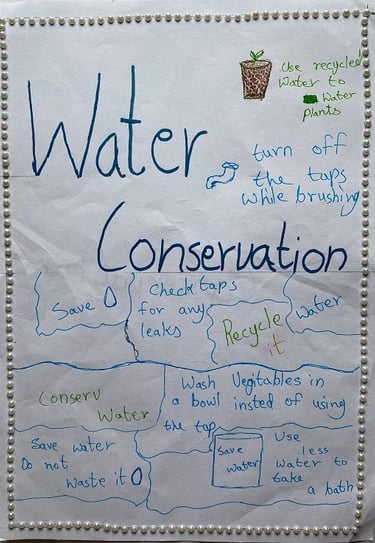 Use recycled
Water to
Water
Plants
Water
turn off
the taps
while brushing
Conservation
Save
Check taps
for any
leaks
Recycle
it
Water
Conserv
Water
Wash Vegitables in
a bowl insted of using
the tap
Save water
Do not
waste it
Save
water
Use
less
water to
take
a bath